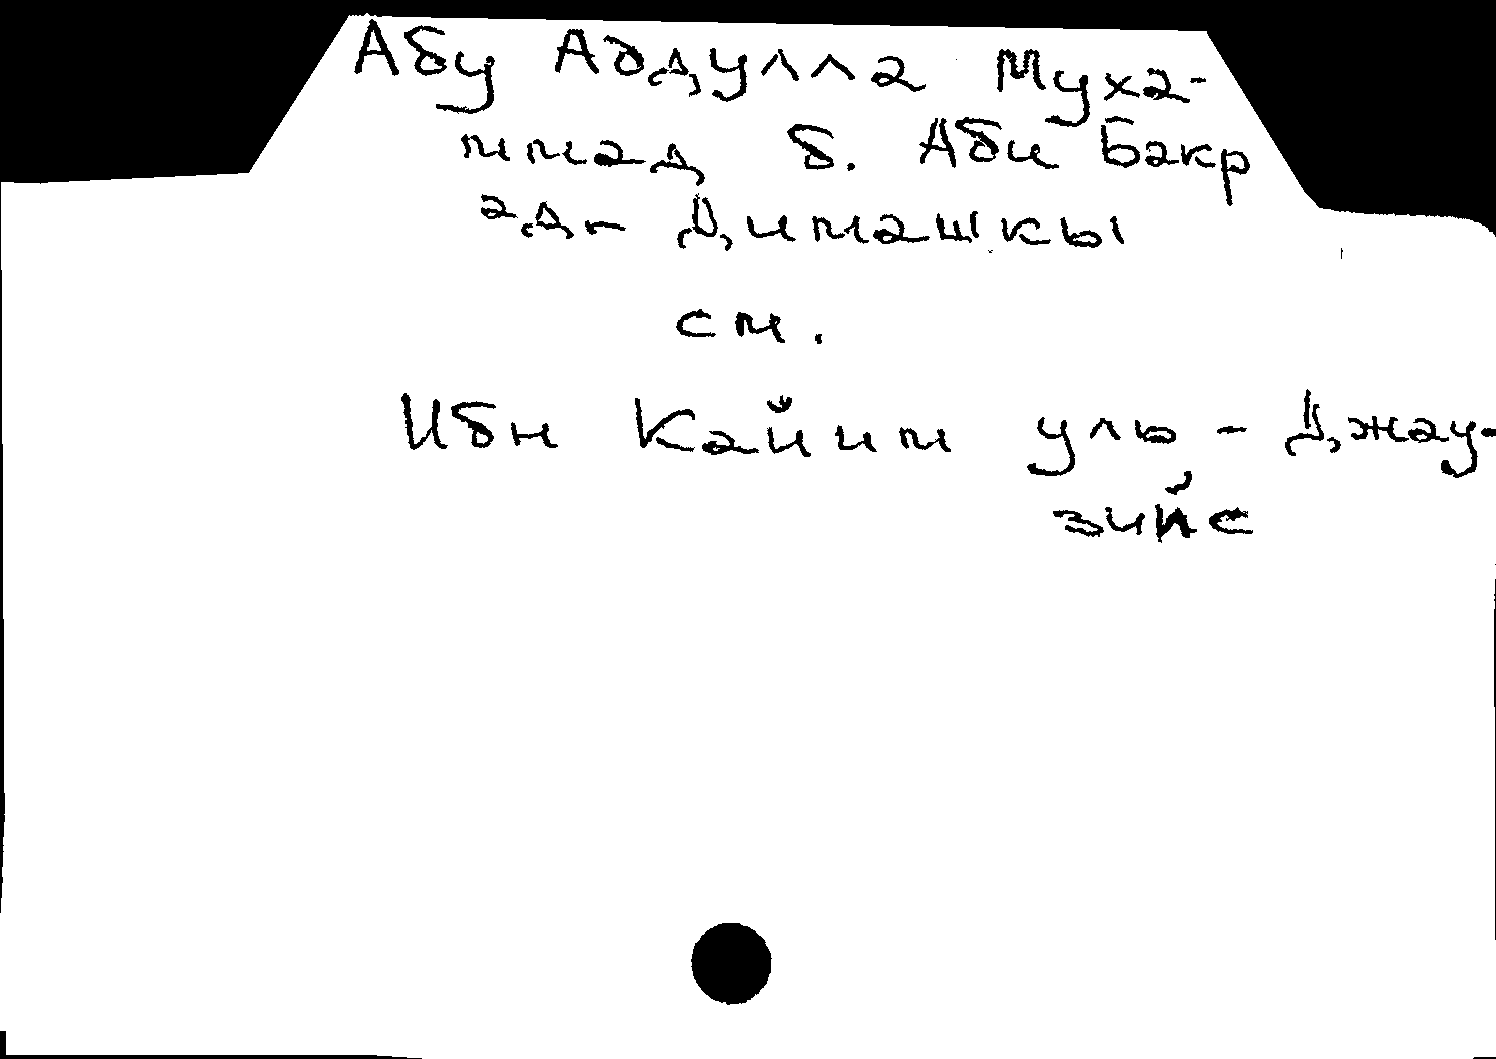 Абу Абдулла Муха-
ммад б. Аби Бакр
ад- Димашкы
см.
Ибн Кайим уль - Джау-
зийе